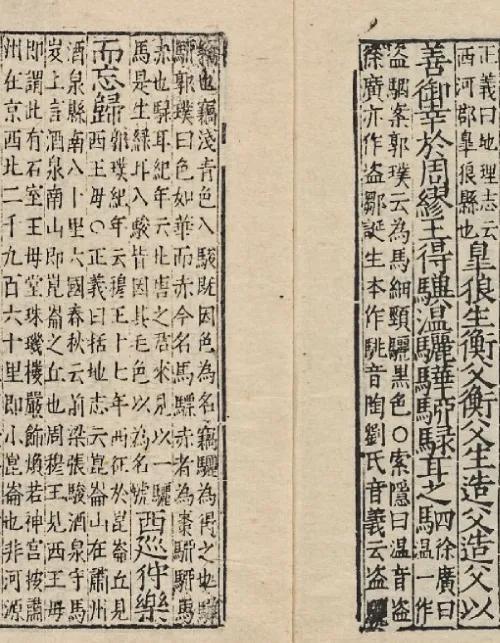 正義曰地理志云
西河郡皐狼縣也
皐狼生衡父衡父生造父造父以
善御幸於周繆王得驥温驪驊騮騄耳之駟
四徐廣曰
温一作
盜駰案郭璞云為馬細頸驪黑色○索隱曰温音盜
徐廣亦作盜鄒誕生本作駣音陶劉氏音義云盜驪
也竊淺青色八駿既因色為名竊驪為得之也驊
騮郭璞曰色如華而赤今名馬驃赤者為棗騮騮馬
赤也騄耳紀年云北唐之君來見以一驪
馬是生綠耳八駿皆因其毛色以為名號
西巡狩樂
而忘歸
郭璞紀年云穆王十七年西征於崑崙丘見
西王母○正義曰括地志云崑崙山在肅州
酒泉縣南八十里六國春秋云前梁張駿酒泉守馬
岌上言酒泉南山即崑崙之丘也周穆王見西王母
即謂此有石室王母堂珠璣樓嚴飾煥若神宮按肅
州在京西北二千九百六十里即小崑崙也非河源